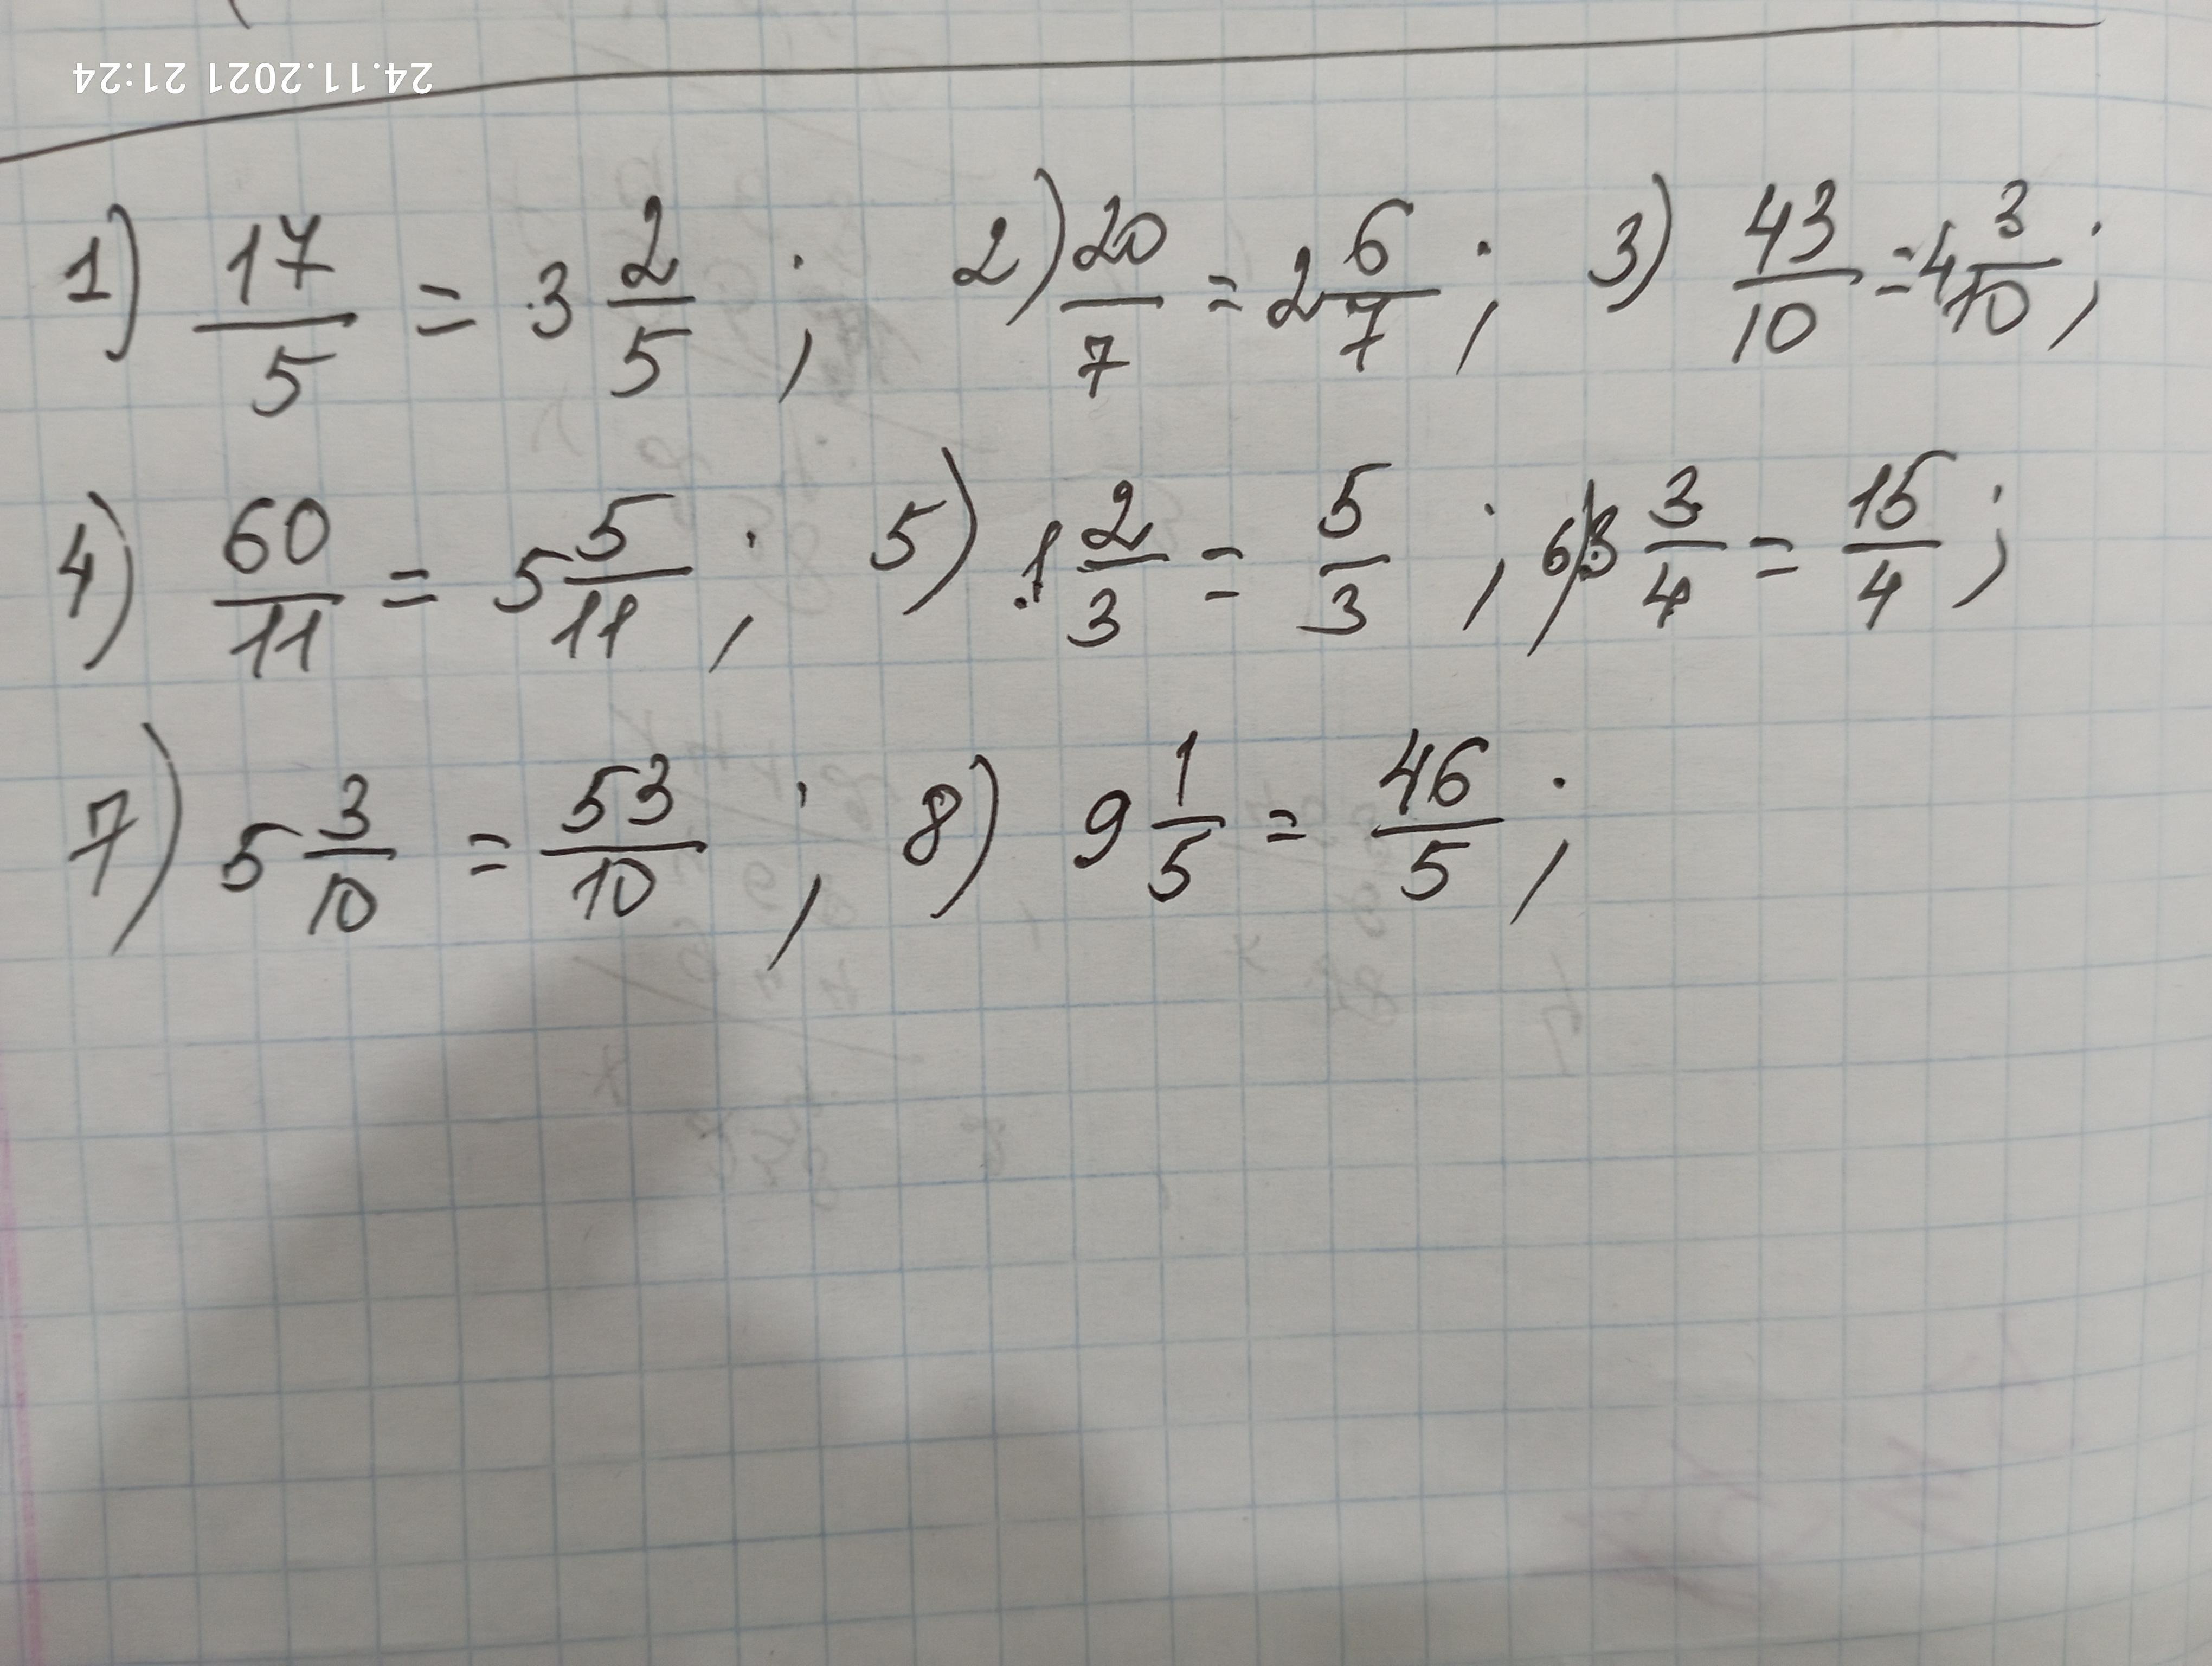 24.11.2021 21:24
1) 17/5 = 3 2/5 ; 2) 20/7 = 2 6/7 ; 3) 43/10 = 4 3/10 ;
4) 60/11 = 5 5/11 ; 5) 1 2/3 = 5/3 ; 6) 3 3/4 = 15/4 ;
7) 5 3/10 = 53/10 ; 8) 9 1/5 = 46/5 ;